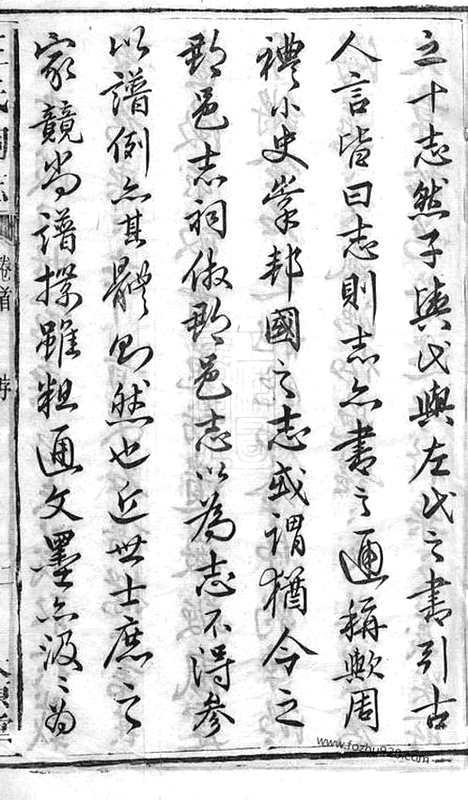 之十志然子輿氏與左氏之書引古
人言皆曰志則志亦書之通稱歟周
禮小史掌邦國之志或謂猶今之
郡邑志祠倣郡邑志以為志不得參
以譜例亦其體則然也近世士庶之
家競尚譜牒雖粗通文墨亦汲〻為
卷首 序
www.fozhu920.com